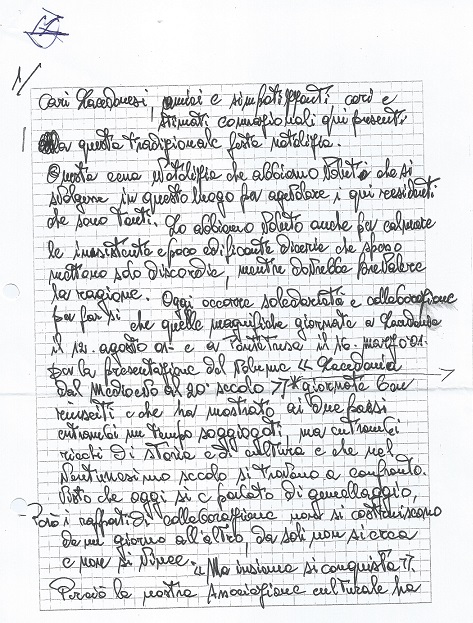 1/
Cari Lacedonesi, amici e simpatizzanti cari e
stimati connazionali qui presenti
a questa tradizionale festa natalizia.
Questa cena Natalizia che abbiamo voluto che si
svolgesse in questo luogo per agevolare i qui residenti
che sono tanti. Lo abbiamo voluto anche per colmare
le inesistente e poco edificante dicerie che spesso
mettono solo discordie, mentre dovrebbe prevalere
la ragione. Oggi occorre solidarietà e collaborazione
per far si che quelle magnifiche giornate a Lacedonia
il 12. agosto 01- e a il 16. marzo 01.
per la presentazione del volume « Lacedonia
dal Medioevo al 20° secolo »* giornate ben
riuscite che ha mostrato ai due paesi
entrambi un tempo soggiogati, ma entrambi
ricchi di storia e di cultura e che nel
ventunesimo secolo si trovano a confronto.
Visto che oggi si è parlato di gemellaggio,
Però i rapporti di collaborazione non si costruiscono
da un giorno all'altro, da soli non si crea
e non si vince. « Ma insieme si conquista ».
Perciò la nostra Associazione culturale ha